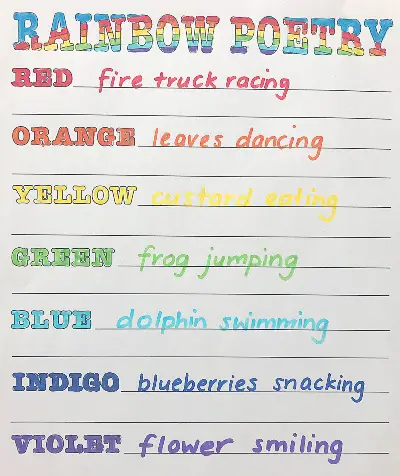 RAINBOW POETRY
RED fire truck racing
ORANGE leaves dancing
YELLOW custard eating
GREEN frog jumping
BLUE dolphin swimming
INDIGO blueberries snacking
VIOLET flower smiling